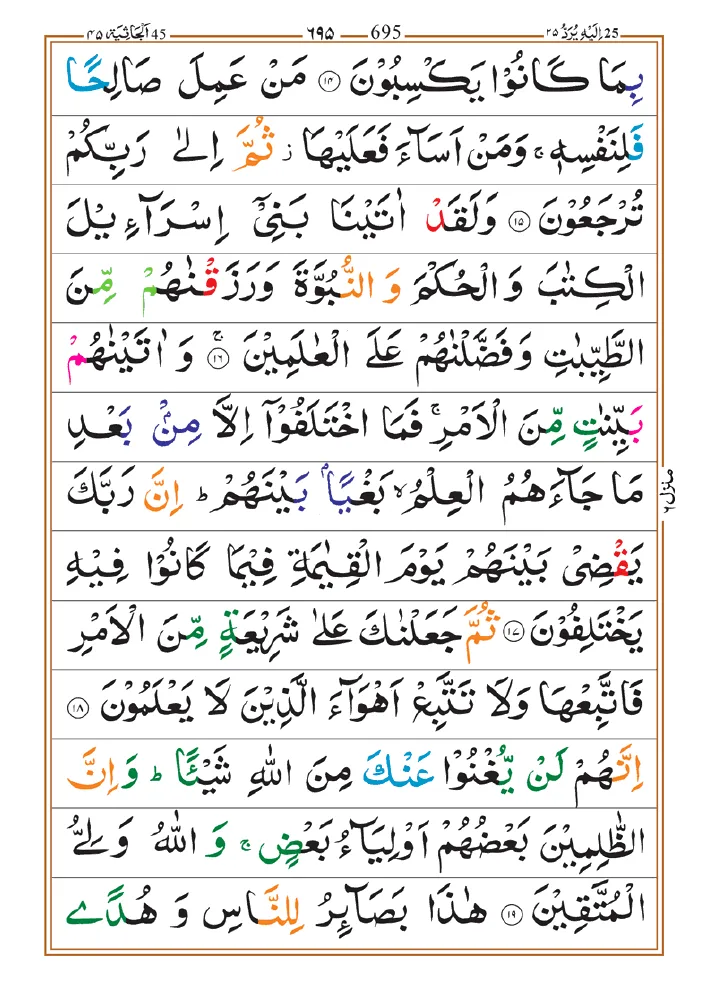 25 اِلَیْهِ یُرَدُّ ۲۵ 695 ۶۹۵ 45 اَلْجَاثِیَة ۴۵
بِمَا كَانُوْا یَكْسِبُوْنَ ۱۴ مَنْ عَمِلَ صَالِحًا
فَلِنَفْسِهٖ ۚ وَمَنْ اَسَآءَ فَعَلَیْهَا ؗ ثُمَّ اِلٰی رَبِّكُمْ
تُرْجَعُوْنَ ۱۵ وَلَقَدْ اٰتَیْنَا بَنِیْۤ اِسْرَآءِیْلَ
الْكِتٰبَ وَالْحُكْمَ وَالنُّبُوَّةَ وَرَزَقْنٰهُمْ مِّنَ
الطَّیِّبٰتِ وَفَضَّلْنٰهُمْ عَلَی الْعٰلَمِیْنَ ۚ ۱۶ وَاٰتَیْنٰهُمْ
بَیِّنٰتٍ مِّنَ الْاَمْرِ ۚ فَمَا اخْتَلَفُوْۤا اِلَّا مِنْۢ بَعْدِ
مَا جَآءَهُمُ الْعِلْمُ ۙ بَغْیًۢا بَیْنَهُمْ ؕ اِنَّ رَبَّكَ
یَقْضِیْ بَیْنَهُمْ یَوْمَ الْقِیٰمَةِ فِیْمَا كَانُوْا فِیْهِ
یَخْتَلِفُوْنَ ۱۷ ثُمَّ جَعَلْنٰكَ عَلٰی شَرِیْعَةٍ مِّنَ الْاَمْرِ
فَاتَّبِعْهَا وَلَا تَتَّبِعْ اَهْوَآءَ الَّذِیْنَ لَا یَعْلَمُوْنَ ۱۸
اِنَّهُمْ لَنْ یُّغْنُوْا عَنْكَ مِنَ اللّٰهِ شَیْـًٔا ؕ وَاِنَّ
الظّٰلِمِیْنَ بَعْضُهُمْ اَوْلِیَآءُ بَعْضٍ ۚ وَاللّٰهُ وَلِیُّ
الْمُتَّقِیْنَ ۱۹ هٰذَا بَصَآىِٕرُ لِلنَّاسِ وَهُدًی
منزل ۶